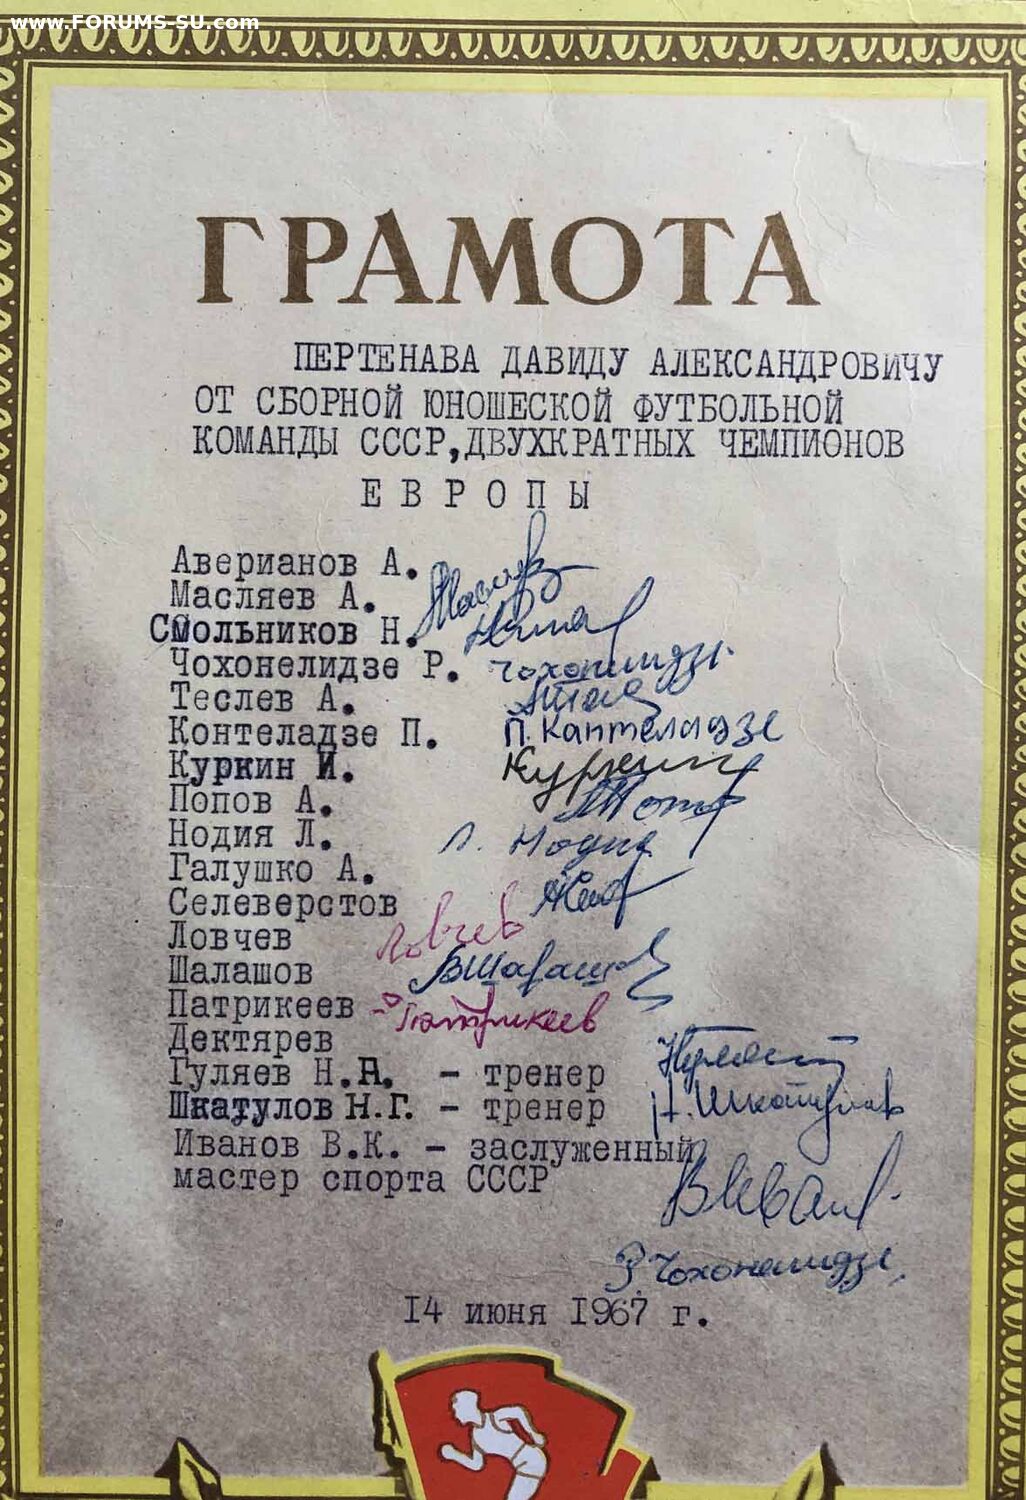 www.FORUMS-SU.com
ГРАМОТА
ПЕРТЕНАВА ДАВИДУ АЛЕКСАНДРОВИЧУ
ОТ СБОРНОЙ ЮНОШЕСКОЙ ФУТБОЛЬНОЙ
КОМАНДЫ СССР, ДВУХКРАТНЫХ ЧЕМПИОНОВ
ЕВРОПЫ
Аверианов А.
Масляев А.
Смольников Н.
Чохонелидзе Р. Чохонелидзе.
Теслев А.
Контеладзе П. П. Каптеладзе
Куркин И. Куркин
Попов А.
Нодия Л. Л. Нодия
Галушко А.
Селеверстов
Ловчев Ловчев
Шалашов
Патрикеев Патрикеев
Дектярев
Гуляев Н.А. - тренер
Шкатулов Н.Г. - тренер
Иванов В.К. - заслуженный
мастер спорта СССР
Р. Чохонелидзе
14 июня 1967 г.